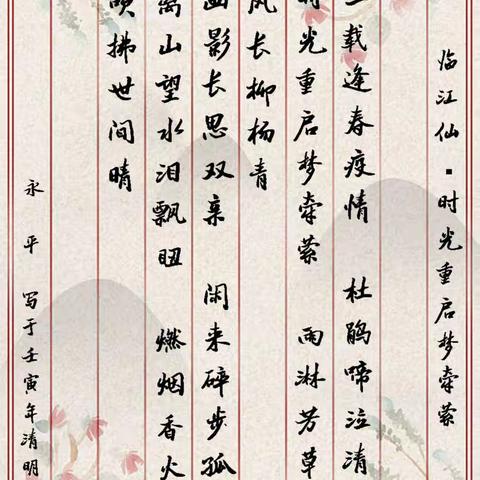 临江仙▪时光重启梦牵萦
载逢春疫情 杜鹃啼泣清
时光重启梦牵萦 雨淋芳草
风长柳杨青
影长思双亲 闲来碎步孤
离山望水泪飘 燃烟香火
拂世间晴
永平 写于壬寅年清明